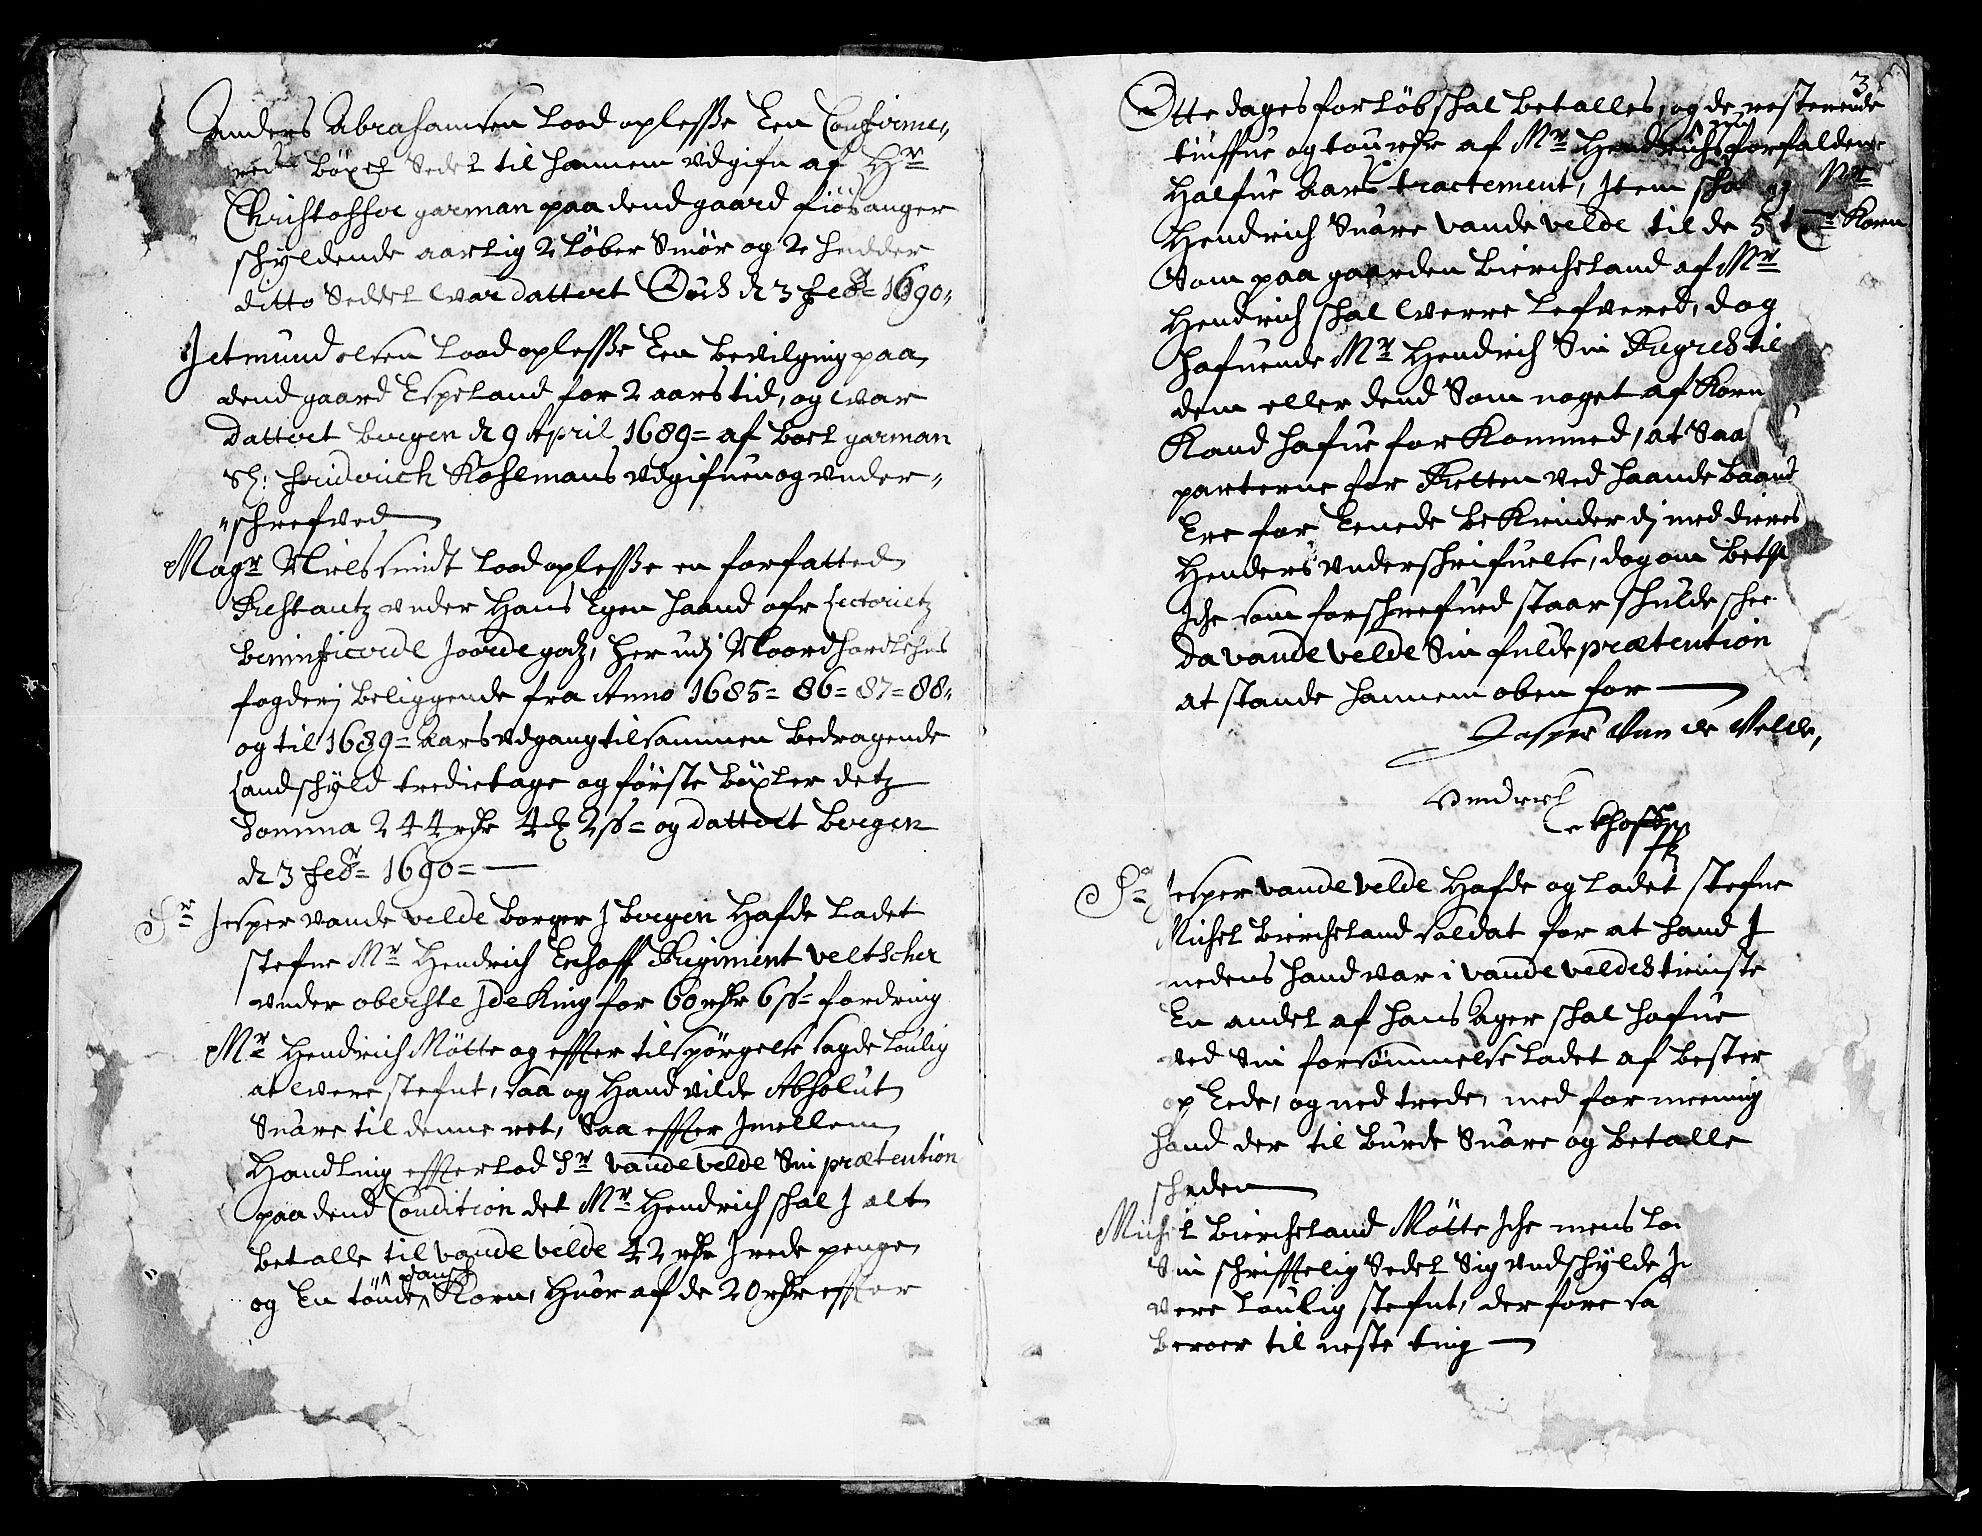 Anders Abrahamsen lood oplesse Een Confirme,,
rede böxel Sedel til hannem vdgifn af Hr
Christoffer garman paa dend gaard fiösanger
schyldende aarlig 2 löber Smör og 2 hudder
ditto Seddel war dattert Ous d 3 febr= 1690,,
Jetmund olsen lood oplesse Een bevilging paa
dend gaard Espeland for 2 aars tid, og war
dattert bergen d 9 April 1689= af boel garman
Sl: friderich Kohlmans vdgifuen og vnder,,
,,schrefved
Magr Niels smidt lood oplesse en forfatted
Restantz vnder hans Egen haand ofr Lectorietz
beneficerede Joordegodz, her udj Noordhordlehns
fogderj beliggende fra Anno 1685= 86= 87= 88,,
og til 1689= Aars vdgang tilsammen bedragende
Landschyld tredietage og förste böxler detz
Somma 244 rdr 4 ₰ 2 ss= og dattert bergen
d 3 febr= 1690=
Sr Jesper vande velde borger J bergen hafde ladet
stefne Mr Hendrich Echoff Regiment veltscher
vnder oberste Jdeking for 60 rdr 6 ss= fordring
Mr Hendrich Mötte og effter tilspörgelse sagde loulig
at were stefnt, saa og hand vilde Absolut
Suare til denne ret, Saa effter Jmellem
Handling efterlod Sr vande velde Sin prætention
paa dend Condition det Mr Hendrich schal J alt
betalle til vande velde 42 rdr J rede penge
og En tönde dansch Korn, huor af de 20 rdr effter
3
Otte dages forlöb schal betalles, og de resterende
tiuffue og tou rdr af Mr Hendrichs forfaldene
halfue Aars tractement, Jtem schal og Mr
Hendrich Suare vande velde til de 5 tr Korn
Som paa gaarden bierckeland af Mr
Hendrich schal werre lefvered, dog
hafuende Mr Hendrich Sin Regres til
dem eller dend Som noget af Korn
Kand hafue forkommed, at Saa
parterne for Retten ved haande baand
Ere for Eenede bekiender dj med dieres
henders vnderschrifuelse, dog om bethl
Jche som forschrefued staar schulde schee
da vande velde Sin fulde prætention
at stande hannem oben for
Jasper Van de Velde,
Hendrich
Eckhoff
Sr Jesper vande velde hafde og ladet stefne
Michel bierckeland soldat for at hand J
medens hand var i vande veldes tieniste
En andel af hans Ager schal hafue
ved Sin forsömmelse ladet af bester
op Eede, og ned trede, med formeening
hand der til burde Suare og betalle
schaden
Michel bierckeland Mötte Jche mens lod
Sin schrifftelig Sedel Sig vndschylde J
vere loulig stefnt, der fore sa
beroer til neste ting